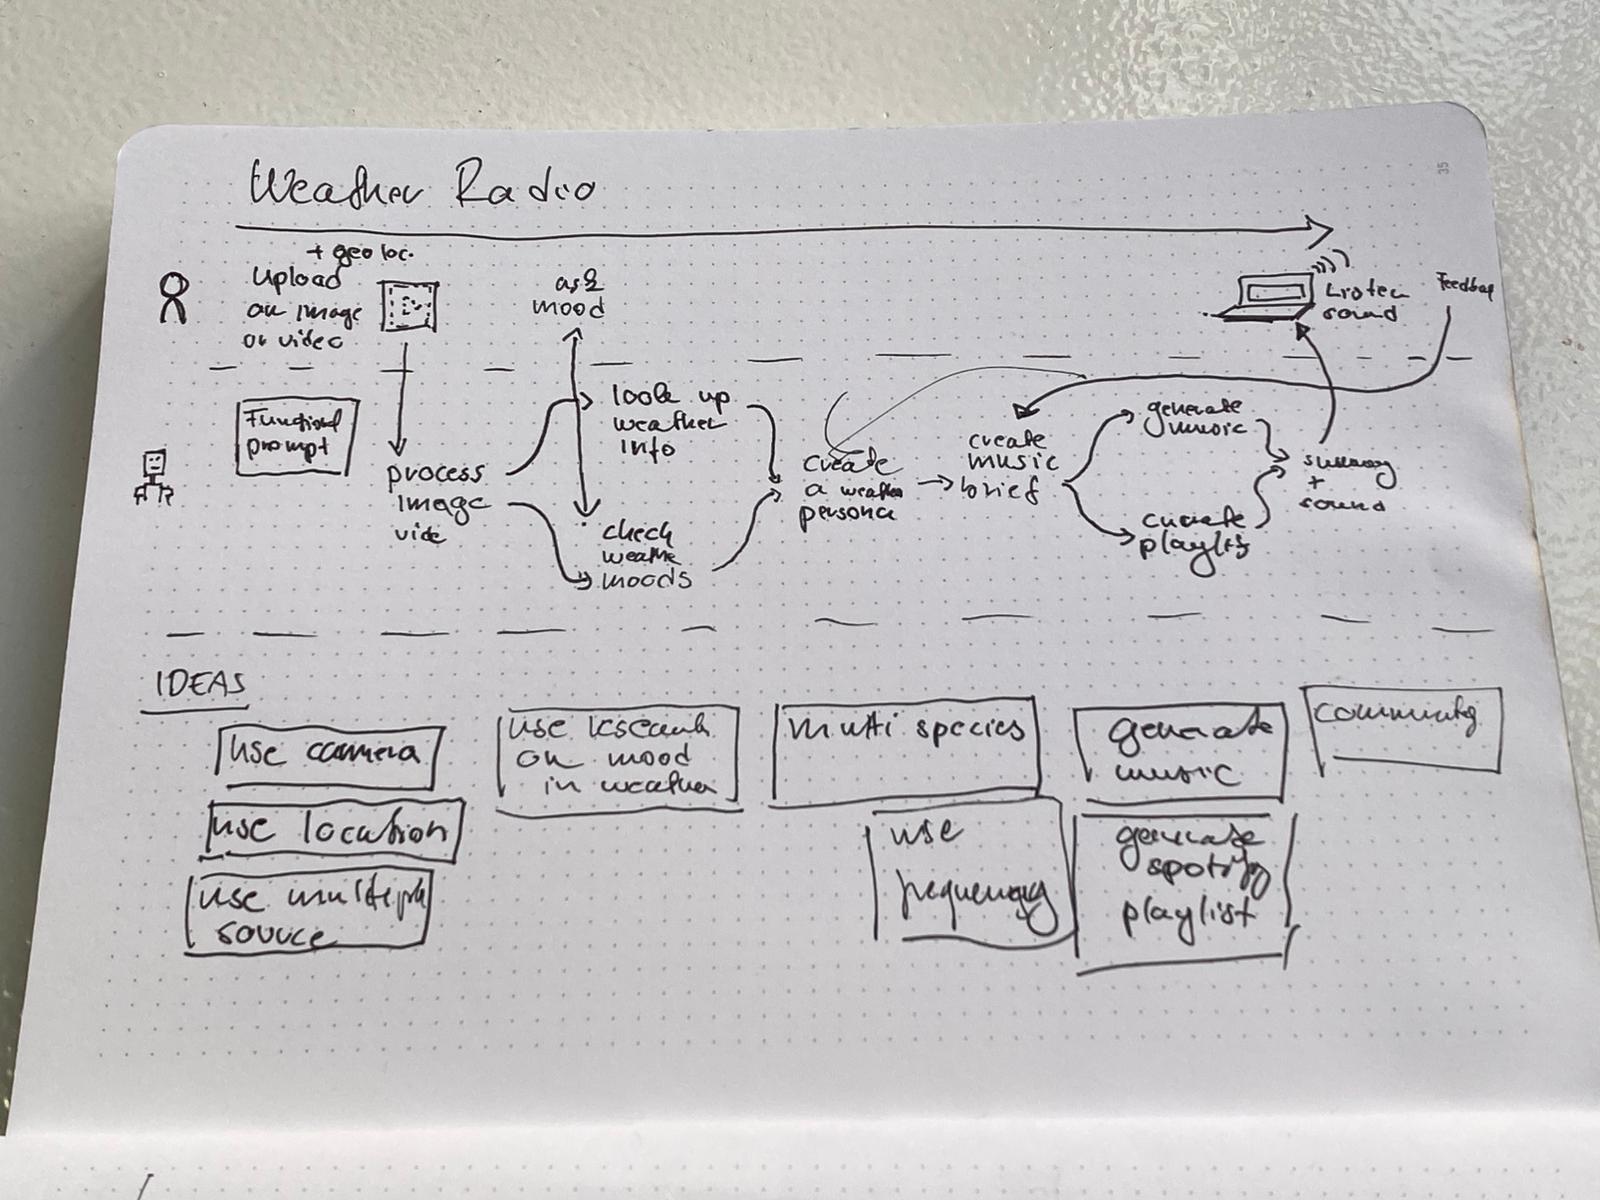 35
Weather Radio
+ geo loc.
upload
an image
or video
ask
mood
Listen
sound
Feedback
Functional
prompt
process
image
vide
look up
weather
info
check
weathe
moods
create
a weather
persona
create
music
brief
generate
music
curate
playlist
+
sound
IDEAS
use camera
use location
use multiple
source
use research
on mood
in weather
multi species
use
frequency
generate
music
generate
spotify
playlist
community